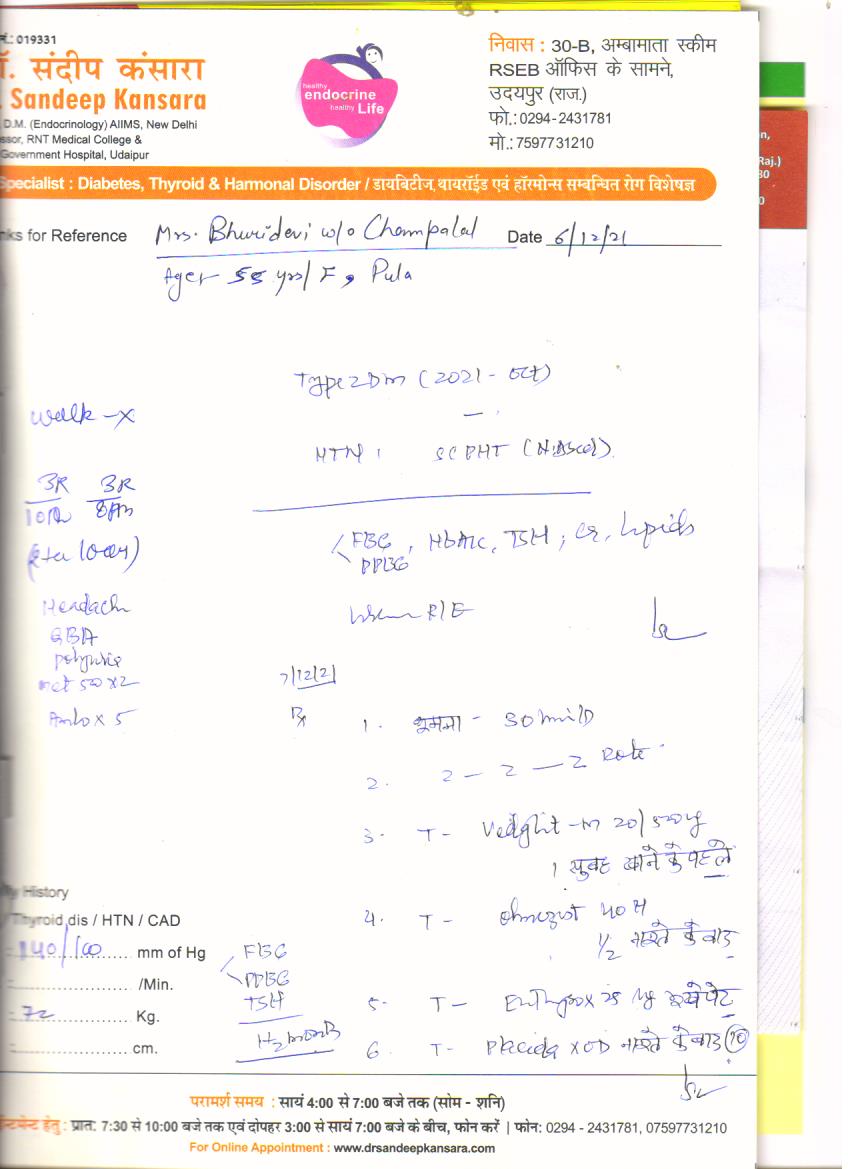 नं.: 019331
ॉ. संदीप कंसारा
. Sandeep Kansara
D.M. (Endocrinology) AIIMS, New Delhi
ssor, RNT Medical College &
Government Hospital, Udaipur
healthy
endocrine
healthy Life
निवास : 30-B, अम्बामाता स्कीम
RSEB ऑफिस के सामने,
उदयपुर (राज.)
फो.: 0294-2431781
मो.: 7597731210
Specialist : Diabetes, Thyroid & Harmonal Disorder / डायबिटीज, थायरॉईड एवं हॉरमोन्स सम्बन्धित रोग विशेषज्ञ
nks for Reference Mrs. Bhuridevi w/o Champalal Date 6/12/21
Age 55 yrs/F, Pula
Type 2 DM (2021 - Oct)
Walk - X
HTN :
3R 3R
8Am
FBG, HbA1c, TSH, Cr, Lipids
PPBG
Headach
GBA
polyuria
met 500 x 2
Amlo x 5
7/12/21
Rx
1. घूमना - 30 min/D
2. 2 - 2 - 2 Rote
3. T - -M 20/500 mg
1 सुबह खाने के पहले
4. T - 40 H
1/2 नाश्ते के बाद
5. T - 25 µg
6. T - Placida X OD नाश्ते के बाद (10)
y History
Thyroid dis / HTN / CAD
= 140/100 mm of Hg
= /Min.
= 72 Kg.
= cm.
FBG
PPBG
TSH
परामर्श समय : सायं 4:00 से 7:00 बजे तक (सोम - शनि)
न्टमेन्ट हेतु : प्रात: 7:30 से 10:00 बजे तक एवं दोपहर 3:00 से सायं 7:00 बजे के बीच, फोन करें | फोन: 0294 - 2431781, 07597731210
For Online Appointment : www.drsandeepkansara.com